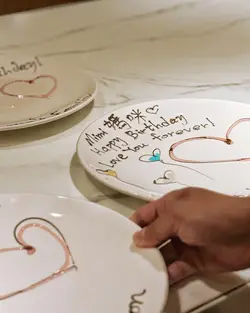 thday!
Mimi 猫咪♡
Happy Birthday
love you forever!